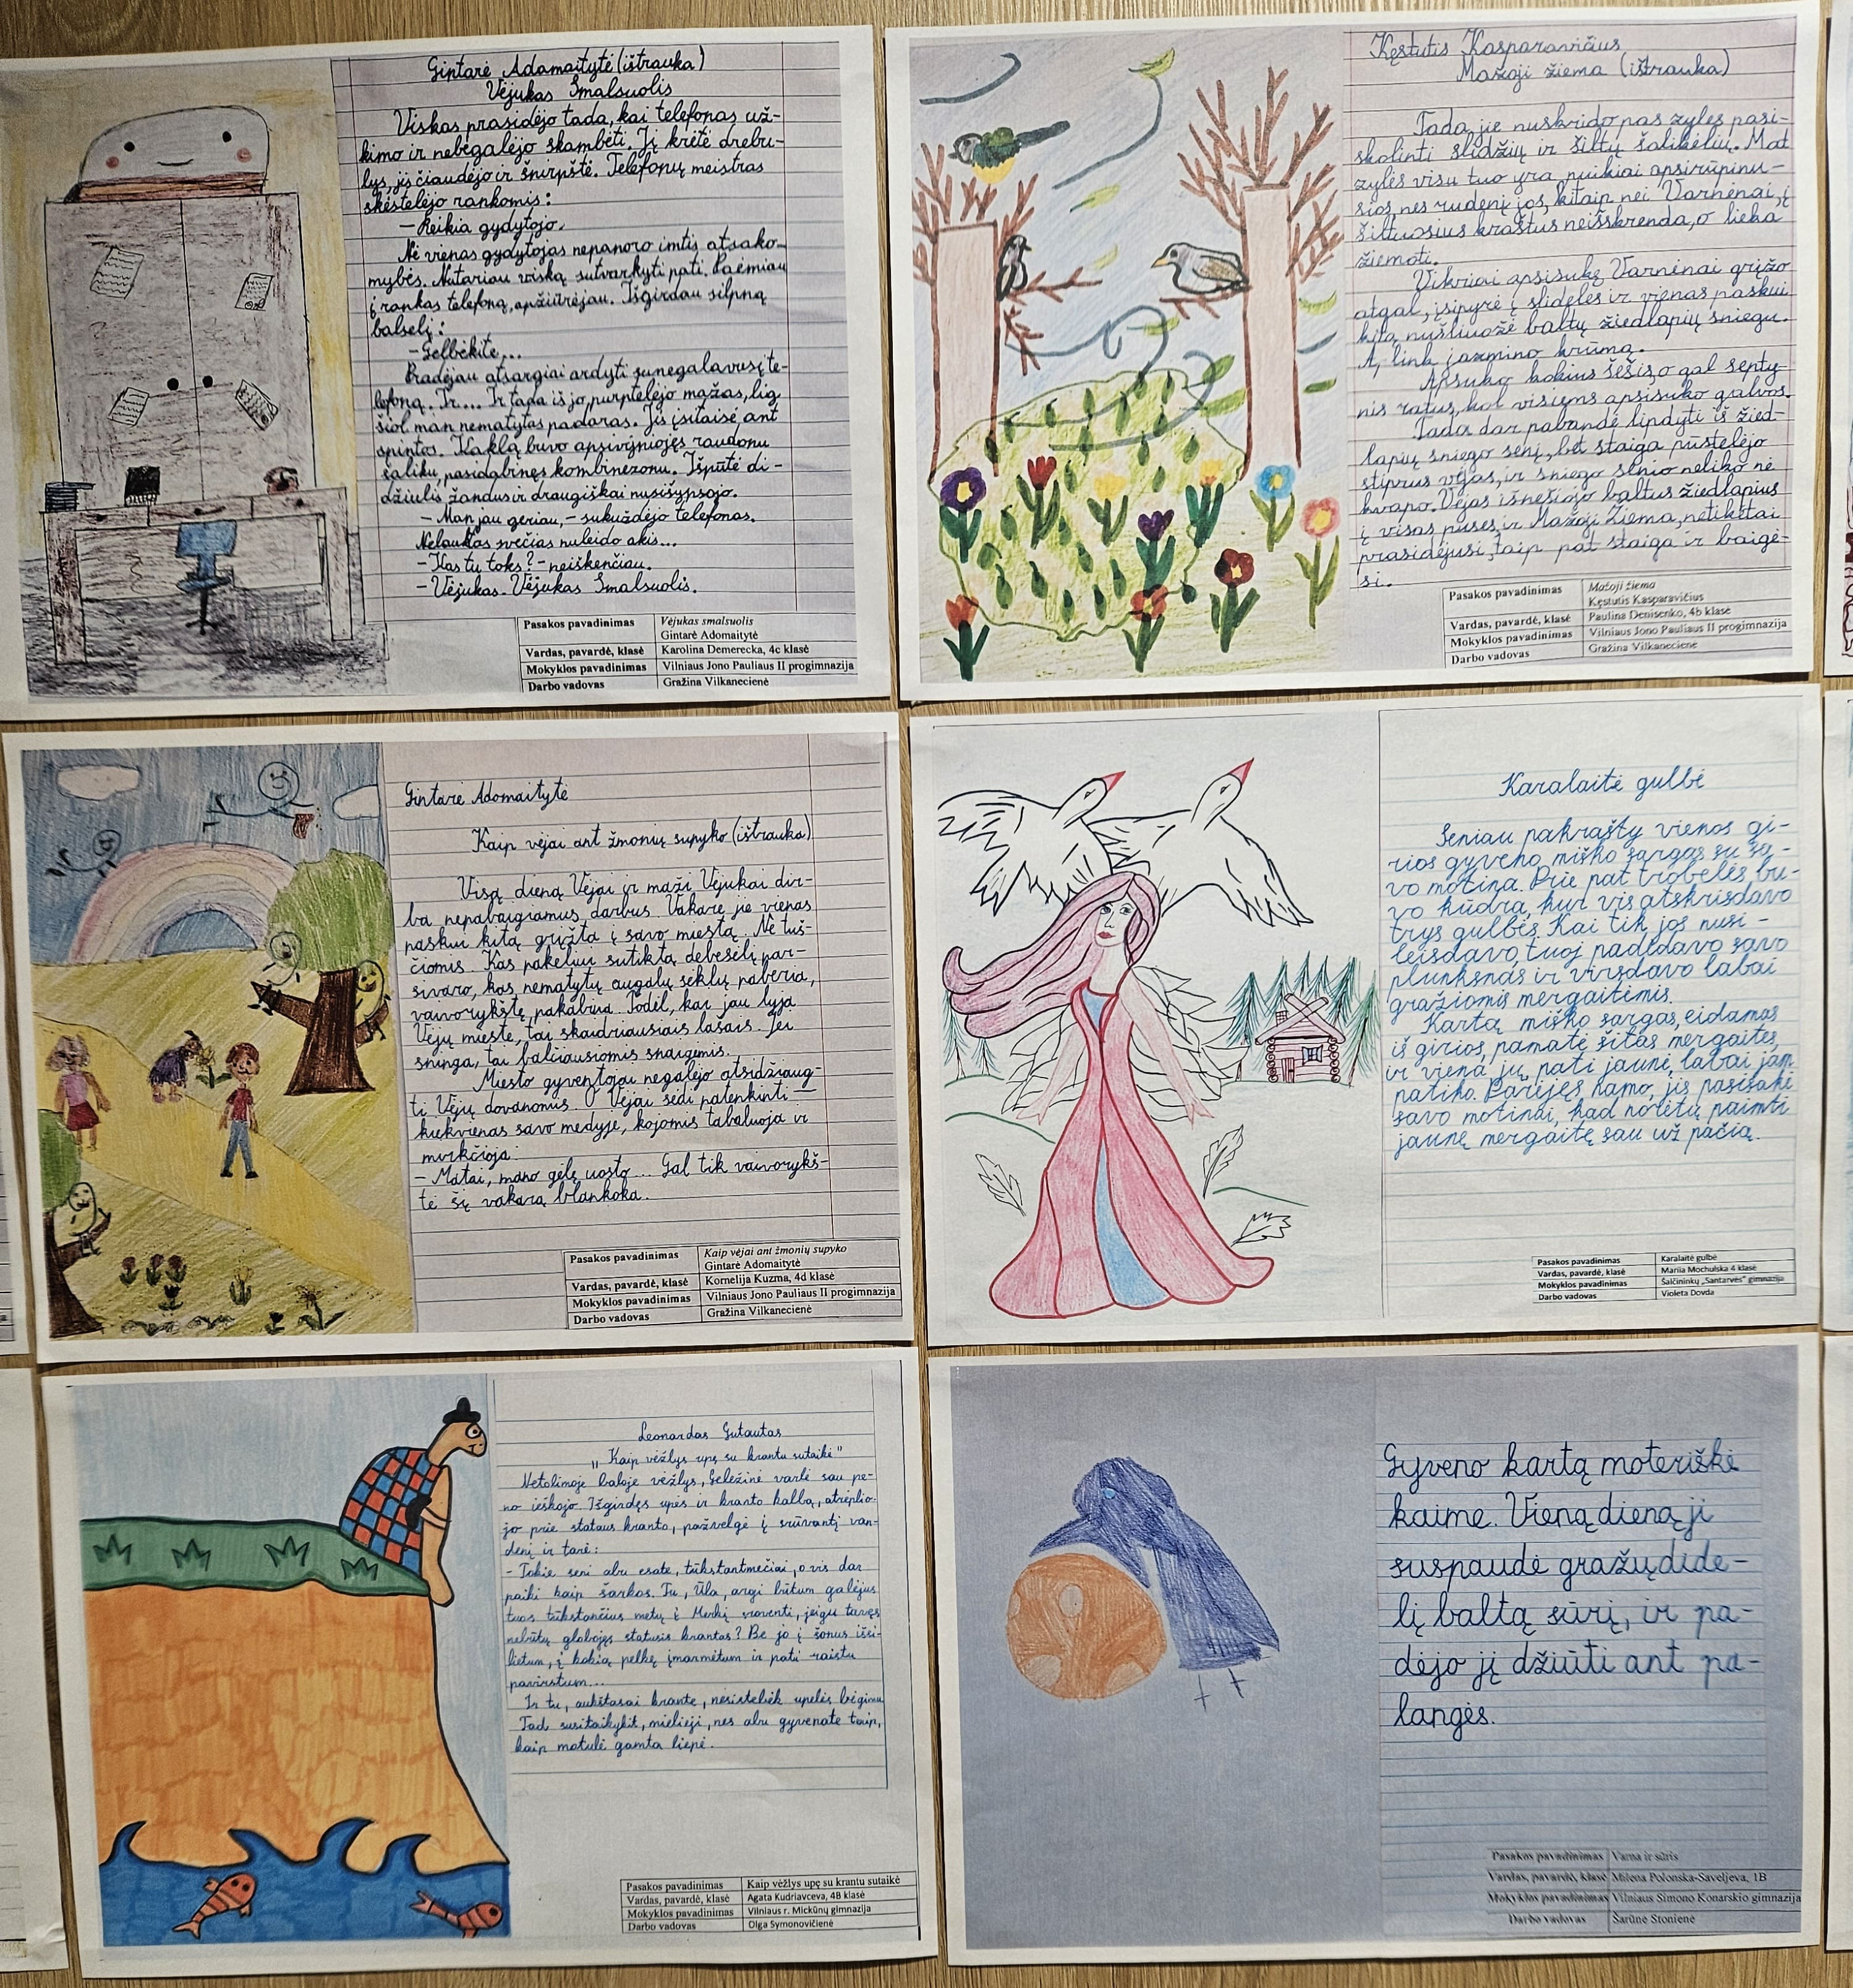 Gintarė Adamaitytė (ištrauka)
Vėjukas Smalsuolis
Viskas prasidėjo tada, kai telefonas už-
kimo ir nebegalėjo skambėti. Jį krėtė drebu-
lys, jis čiaudėjo ir šnirpštė. Telefonų meistras
skėstelėjo rankomis:
– Reikia gydytojo.
Nė vienas gydytojas nepanoro imtis atsako-
mybės. Nutariau viską sutvarkyti pati. Paėmiau
į rankas telefoną, apžiūrėjau. Išgirdau silpną
balselį:
– Gelbėkite...
Pradėjau atsargiai ardyti sunegalavusį te-
lefoną. Ir... Ir tada iš jo purptelėjo mažas, lig
šiol man nematytas padaras. Jis įsitaisė ant
spintos. Kaklą buvo apsivyniojęs raudonu
šaliku, pasidabinęs kombinezonu. Išpūtė di-
džiulis žandus ir draugiškai nusišypsojo.
– Man jau geriau, – sukuždėjo telefonas.
Nelauktas svečias nuleido akis...
– Kas tu toks? – neiškenčiau.
– Vėjukas. Vėjukas Smalsuolis.
Pasakos pavadinimas Vėjukas smalsuolis
Gintarė Adomaitytė
Vardas, pavardė, klasė Karolina Demerecka, 4c klasė
Mokyklos pavadinimas Vilniaus Jono Pauliaus II progimnazija
Darbo vadovas Gražina Vilkanecienė
Kęstutis Kasparavičius
Mažoji žiema (ištrauka)
Tada jie nuskrido pas zyles pasi-
skolinti slidžių ir šiltų šalikėlių. Mat
zylės visu tuo yra puikiai apsirūpinu-
sios, nes rudenį jos, kitaip nei Varnėnai, į
šiltuosius kraštus neišskrenda, o lieka
žiemoti.
Vikriai apsisukę Varnėnai grįžo
atgal, įsispyrė į slideles ir vienas paskui
kitą nušliuožė baltų žiedlapių sniegu.
A, link jazmino krūmą.
Apsuko kokius šešis, o gal septy-
nis ratus, kol visiems apsisuko galvos.
Tada dar pabandė lipdyti iš žied-
lapių sniego senį, bet staiga pūstelėjo
stiprus vėjas, ir sniego senio neliko nė
kvapo. Vėjas išnešiojo baltus žiedlapius
į visas puses, ir Mažoji Žiema, netikėtai
prasidėjusi, taip pat staiga ir baigė-
si.
Pasakos pavadinimas Mažoji žiema
Kęstutis Kasparavičius
Vardas, pavardė, klasė Paulina Denisenko, 4b klasė
Mokyklos pavadinimas Vilniaus Jono Pauliaus II progimnazija
Darbo vadovas Gražina Vilkanecienė
Gintarė Adomaitytė
Kaip vėjai ant žmonių supyko (ištrauka)
Visą dieną Vėjai ir maži Vėjukai dir-
ba nepabaigiamus darbus. Vakare jie vienas
paskui kitą grįžta į savo miestą. Ne tuš-
čiomis. Kas pakeliui sutiktą debesėlį par-
sivaro, kas nematytų augalų sėklų paberia,
vaivorykštę pakabina. Todėl, kai jau lyja
Vėjų mieste, tai skaidriausiais lašais. Jei
sninga, tai balčiausiomis snaigėmis.
Miesto gyventojai negalėjo atsidžiaug-
ti Vėjų dovanomis. O Vėjai sėdi patenkinti –
kiekvienas savo medyje, kojomis tabaluoja ir
murkčioja:
– Matai, mano gėlę uosto... Gal tik vaivorykš-
tė šį vakarą blankoka.
Pasakos pavadinimas Kaip vėjai ant žmonių supyko
Gintarė Adomaitytė
Vardas, pavardė, klasė Kornelija Kuzma, 4d klasė
Mokyklos pavadinimas Vilniaus Jono Pauliaus II progimnazija
Darbo vadovas Gražina Vilkanecienė
Karalaitė gulbė
Seniau pakrašty vienos gi-
rios gyveno miško sargas su sa-
vo motina. Prie pat trobelės bu-
vo kūdra, kur vis atskrisdavo
trys gulbės. Kai tik jos nusi-
leisdavo, tuoj padėdavo savo
plunksnas ir virsdavo labai
gražiomis mergaitėmis.
Kartą miško sargas, eidamas
iš girios, pamatė šitas mergaites,
ir viena jų, pati jaunė, labai jam
patiko. Parėjęs namo, jis pasisakė
savo motinai, kad norėtų paimti
jaunę mergaitę sau už pačią.
Pasakos pavadinimas Karalaitė gulbė
Vardas, pavardė, klasė Mariia Mochulska 4 klasė
Mokyklos pavadinimas Šalčininkų „Santarvės" gimnazija
Darbo vadovas Violeta Dovda
Leonardas Gutautas
„Kaip vėžlys upę su krantu sutaikė"
Netolimoje baloje vėžlys, Geležinė varlė sau pe-
no ieškojo. Išgirdęs upės ir kranto kalbą, atrėplio-
jo prie stataus kranto, pažvelgė į srūvantį van-
denį ir tarė:
– Tokie seni abu esate, tūkstantmečiai, o vis dar
paiki kaip šarkos. Tu, Ūla, argi būtum galėjus
tuos tūkstančius metų į Merkį sroventi, jeigu tavęs
nebūtų globojęs statusis krantas? Be jo į šonus išsi-
lietum, į kokią pelkę įmarmėtum ir pati raistu
pavirstum...
Ir tu, aukštasai krante, nesistebėk upelės bėgimu
Tad susitaikykit, mielieji, nes abu gyvenate taip,
kaip motulė gamta liepė.
Pasakos pavadinimas Kaip vėžlys upę su krantu sutaikė
Vardas, pavardė, klasė Agata Kudriavceva, 4B klasė
Mokyklos pavadinimas Vilniaus r. Mickūnų gimnazija
Darbo vadovas Olga Symonovičienė
Gyveno kartą moteriškė
kaime. Vieną dieną ji
suspaudė gražų dide-
lį baltą sūrį, ir pa-
dėjo jį džiūti ant pa-
langės.
Pasakos pavadinimas Varna ir sūris
Vardas, pavardė, klasė Milena Polonska-Saveljeva, 1B
Mokyklos pavadinimas Vilniaus Simono Konarskio gimnazija
Darbo vadovas Šarūnė Stonienė